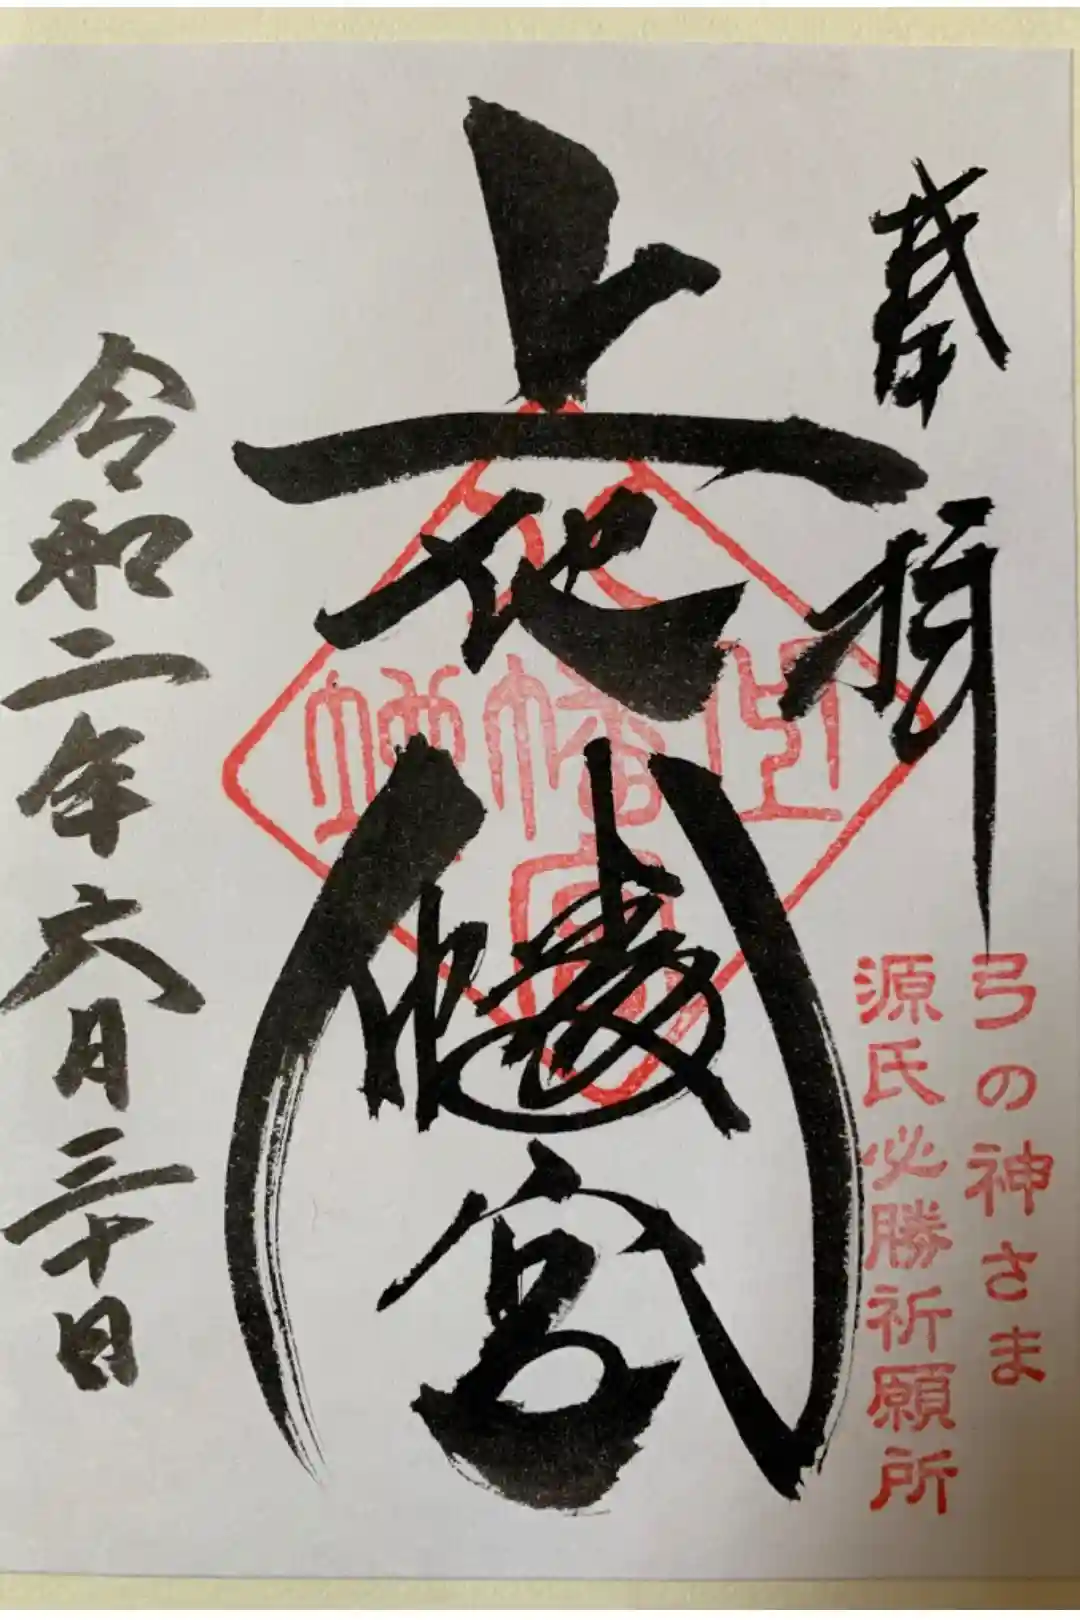 奉拝
弓の神さま
源氏必勝祈願所
上地八幡宮
上地八幡宮
令和二年六月三十日